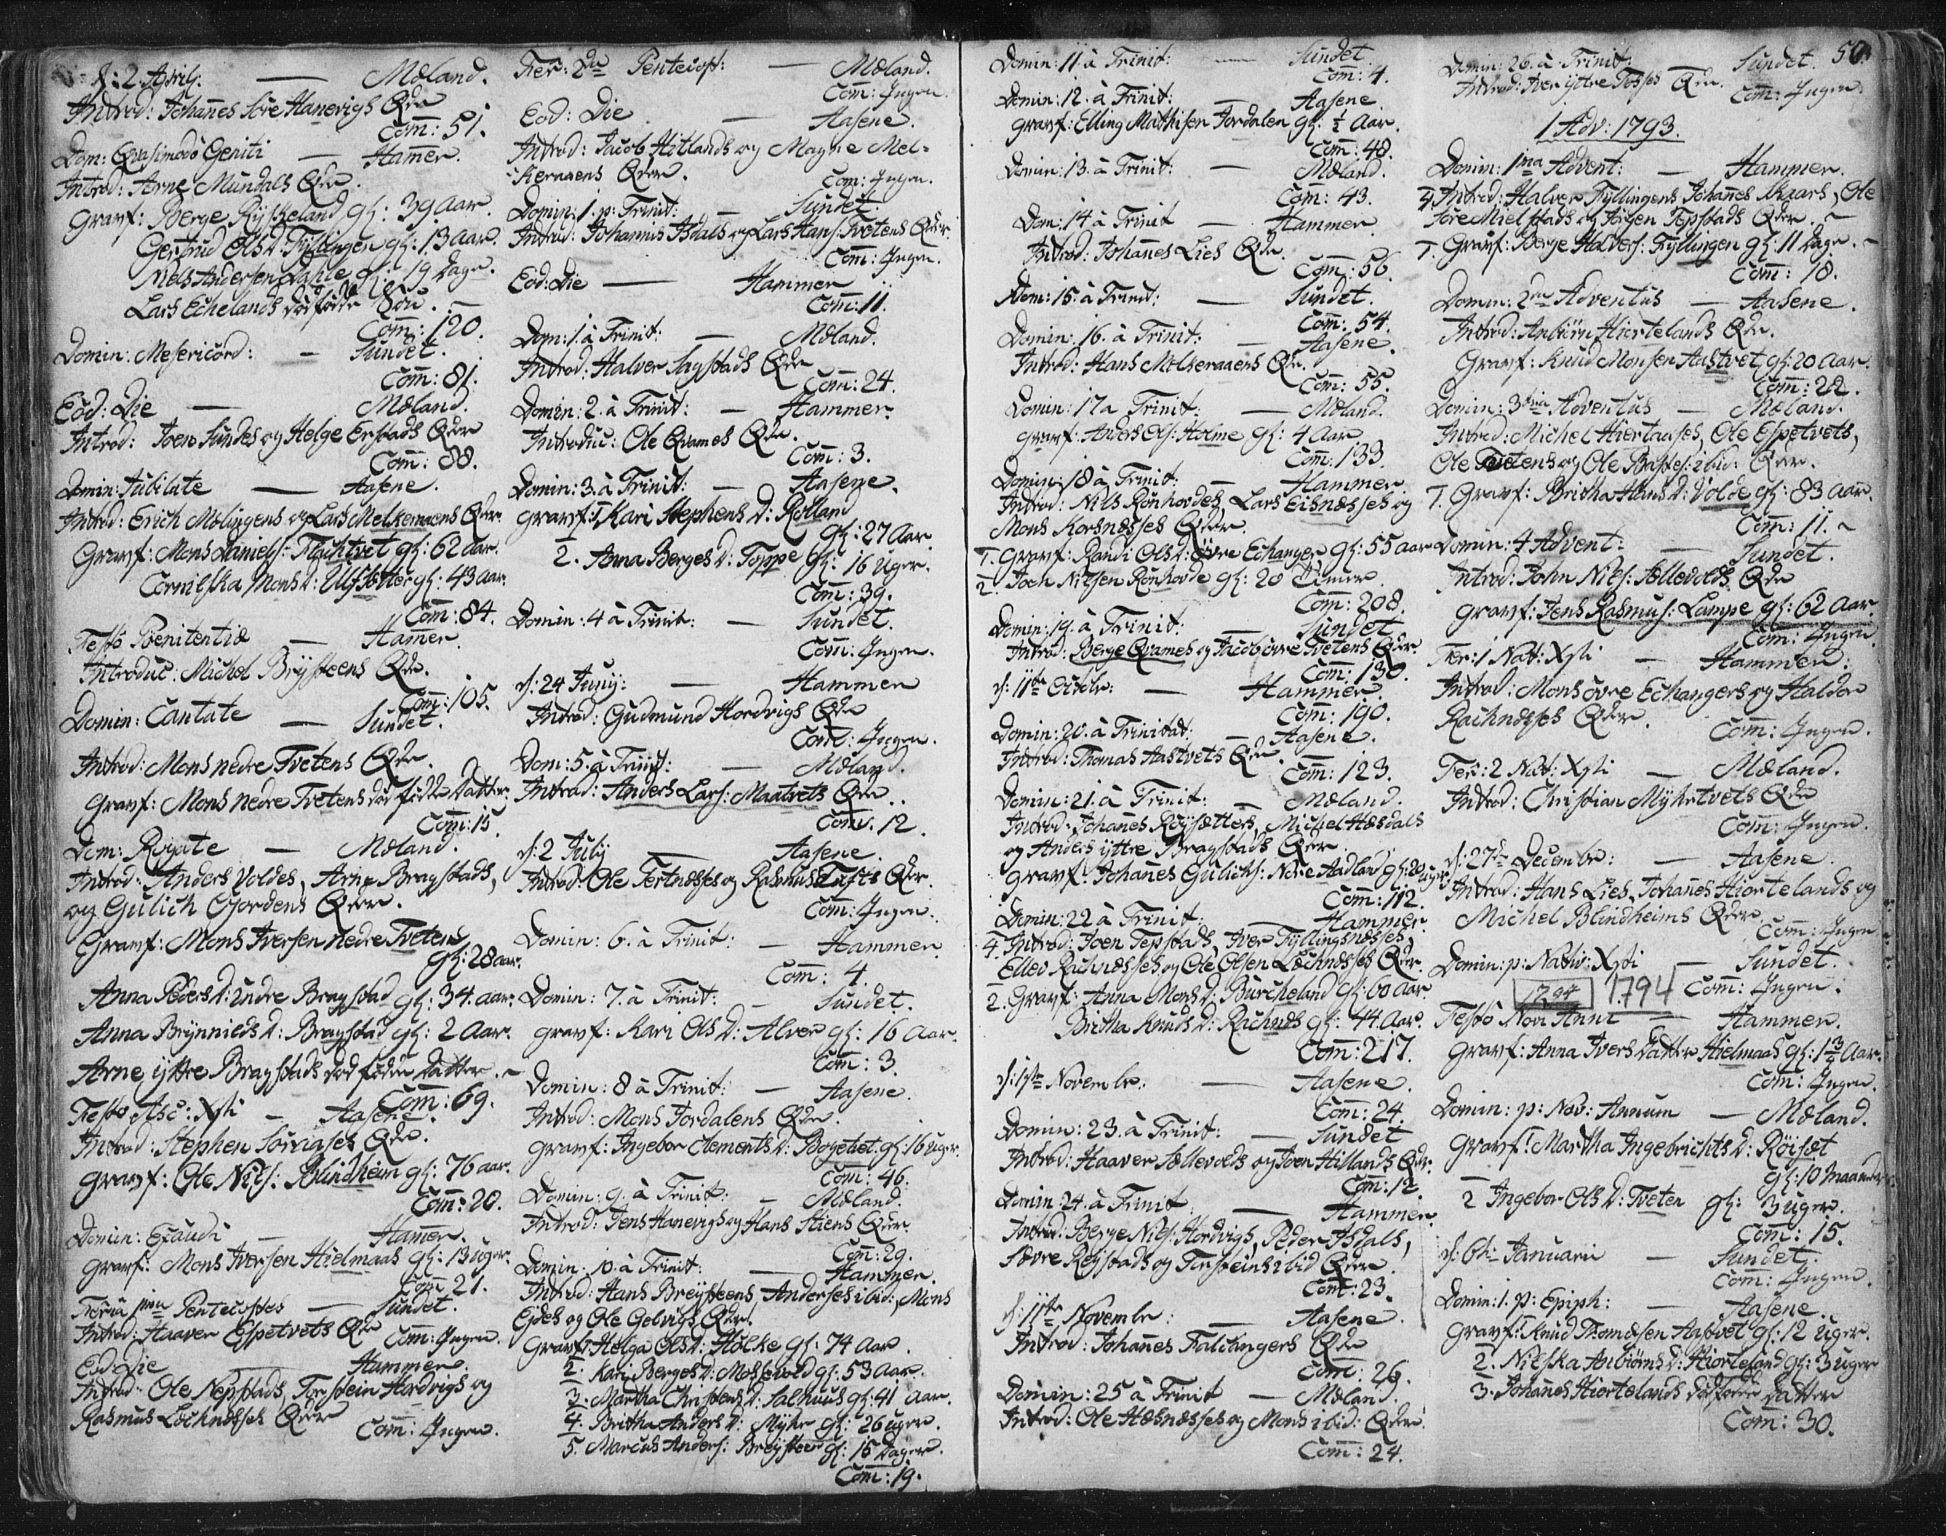 d: 2 April: — Mæland.
Introd: Johanes søre Hanevigs Qde
Com: 51.
Dom: Qvasimodo Geniti — Hamer.
Introd: Arne Mundals Qde.
Gravf: Berge Ryskeland gl: 39 aar.
Gertrud Ols D: Fyllingen gl: 13 aar.
Niels Andersen Dahle gl: 19 Dage.
Lars Echelands dødfødde
Com: 120.
Domin: Mesericord: — Sundet.
Com: 81.
Eod: Die — Mæland.
Introd: Joen Sundes og Helge Erstads Qdr
Com: 88.
Domin: Jubilate — Aasene.
Introd: Erich Mølingens og Lars Melkeraaens Qdr
Gravf: Mons Daniels: Flachtvet gl: 62 aar.
Cornelska Mons D: Ulfsetter gl: 43 aar.
Com: 84.
Festo Poenitentiæ — Hamer.
Introduc: Michel Brÿsteens Qde.
Com: 105.
Domin: Cantate — Sundet.
Introd: Mons nedre Tvetens Qde.
Gravf: Mons nedre Tvetens død fødde Datter
Com: 15.
Dom: Rogate — Mæland.
Introd: Anders Voldes, Arne Bragstads,
og Gulich Gjordens Qdr.
Gravf: Mons Iversen nedre Tveten
gl: 28 aar.
Anna Peders D: indre Bragstad gl: 34. aar.
Anna Brynnields D: Bragstad gl: 2 Aar.
Arne ÿttre Bragstads død fødde Datter.
Com: 69.
Festo Asc: Xsti — Aasene.
Introd: Stephen Sørviges Qde.
Gravf: Ole Niels: Blindheim gl: 76 aar.
Com: 20.
Domin: Exaudi — Hamer.
Gravf: Mons Iversen Hielmaas gl: 13 uger.
Com 21.
Feria 1ma Pentecostes — Sundet.
Introd: Haaver Espetvets Qde Com: Ingen.
Eod: Die — Hammer.
Introd: Ole Nepstads, Torstein Hordvigs og
Rasmus Lochnæsses Qdr
Com: Ingen.
Fer: 2da Pentecost: — Mæland.
Com: Ingen.
Eod: Die — Aasene.
Introd: Jacob Hitlands og Magne Mel-
keraaens Qdr.
Com: Ingen.
Domin: 1. p: Trinit: — Sundet.
Introd: Johannis Isdals og Lars Hans: Tvetens Qdr.
Com: Ingen.
Eod: Die — Hammer
Com: 11.
Dom: 1. à Trinit: — Mæland.
Introd: Halver Sagstads Qde
Com: 24.
Domin: 2. à Trinit: — Hammer.
Introduc: Ole Qvames Qde.
Com: 3.
Domin: 3. à Trinit: — Aasene.
Gravf: 1. Kari Stephens D: Rolland
gl: 27 Aar.
2. Anna Berges D: Toppe gl: 16 uger.
Com: 39.
Domin: 4 à Trinit: — Sundet.
Com: Ingen.
d: 24 Junÿ: — Hammer
Introd: Gudmund Hordvigs Qde
Com: Ingen.
Dom: 5. à Trinit: — Mæland.
Introd: Anders Lars: Maatvets Qde.
Com: 12.
d: 2 Julÿ — Aasene.
Introd: Ole Tertnæsses og Rasmus Tufts Qdr.
Com: Ingen.
Domin: 6. à Trinit: — Hammer.
Com: 4.
Domin: 7. à Trinit: — Sundet.
Gravf: Kari Ols D: Alver gl: 16 Aar.
Com: 3.
Domin: 8 à Trinit: — Aasene.
Introd: Mons Jordalens Qde.
Gravf: Ingebor Clements D: gl: 16 uger.
Com: 46.
Domin: 9. à Trinit: — Mæland.
Introd: Jens Hanevigs og Hans Stiens Qdr
Com: 29.
Domin: 10. à Trinit: — Hammer.
Introd: Hans Breÿsteens, Anders ibid, Mons
Eides og Ole Gelvigs Qdr.
Gravf: Helga Ols D: Holke gl: 74 Aar.
2. Kari Berges D: Mossevold gl: 53 Aar.
3. Martha Christens D: Salhuus gl: 41 Aar.
4. Britha Anders D: Myhr gl: 26 uger.
5. Marcus Anders: Breÿsteen gl: 15 Dage.
Com: 19.
Domin: 11. à Trinit: — Sundet
Com: 4.
Domin: 12. à Trinit: — Aasene.
Gravf: Elling Mathisen Jordalen gl: ½ Aar.
Com: 48.
Domin: 13. à Trinit: — Mæland.
Com: 43.
Dom: 14 à Trinit — Hammer.
Introd: Johanes Lies Qde.
Com: 56.
Dom: 15. à Trinit: — Sundet.
Com: 54.
Domin: 16. à Trinit: — Aasene.
Introd: Hans Melkeraaens Qde.
Com: 55.
Domin: 17 a Trinit: — Mæland.
Gravf: Anders Ols: Holme gl: 4 Aar
Com: 133.
Domin: 18 à Trinit: — Hammer
Introd: Nils Rønhovdes, Lars Eisnæsses og
Mons Korsnæsses Qdr.
1. Gravf: Randi Ols D: øvre Echanger gl: 55 aar
2. Joen Nilsen Rønhovde gl: 20 Timer.
Com: 208.
Domin: 19. à Trinit: — Sundet
Introd: Berge Qvames og Jacob øvre Tvetens Qdr.
Com: 130.
d: 11te Octobr: — Hammer.
Com: 190.
Domin: 20. à Trinitat: — Aasene.
Introd: Thomas Aastvets Qde.
Com: 123.
Domin: 21. à Trinit: — Mæland.
Introd: Johanes Røÿsætters, Michel Hæsdals
og Anders ÿttre Bragstads Qdr.
Gravf: Johanes Gulichs: Nedre Aadland gl: uger
Com: 112.
Domin: 22 à Trinit: — Hammer.
4. Introd: Joen Tepstads, Iver Fyllingsnæsses,
Ellev Rachnæsses og Ole Olsen Lochnæsses Qdr.
2. Gravf: Anna Mons D: Burcheland gl: 60 Aar.
Birtha Knuds D: Rachnes gl: 44 Aar.
Com: 217.
d: 1ste Novembr: — Aasene.
Com: 24.
Domin: 23. à Trinit: — Sundet
Introd: Haaver Sællevolds og Joen Hillands Qdr.
Com: 12.
Domin: 24. à Trinit — Hammer.
Introd: Berge Niels: Hordvigs, Peder Isdals,
Siovre Reÿstads og Torsteins ibid Qdr.
Com: 23.
d: 11te Novembr: — Aasene.
Introd: Johanes Faltangers Qde
Com: 26.
Domin: 25 à Trinit — Mæland.
Introd: Ole Hæsnæsses og Mons ibid: Qdr.
Com: 24.
Domin: 26. à Trinit. Sundet. 50.
Introd: Iver ÿttre Tosses Qde. Com: Ingen.
1 Adv: 1793.
Domin: 1ma Advent: — Hammer.
4 Introd: Halver Fyllingens, Johanes Skaars, Ole
søre Mielstads og Torsten Tepstads Qdr.
1. Gravf: Berge Halvers: Fyllingen gl: 11 Dage.
Com: 18.
Domin: 2da Adventus — Aasene.
Introd: Anbiørn Hiortelands Qde.
Gravf: Knud Monsen Aastvet gl: 20 Aar.
Com: 22.
Domin: 3tia Adventus — Mæland.
Introd: Michel Hiertaases, Ole Espetvets,
Ole Tvetens og Ole Bastes: ibid: Qdr.
1. Gravf: Britha Hans D: Volde gl: 83 aar.
Com: 11.
Domin: 4 Advent: — Sundet.
Introd: John Niels: Sællevolds Qde
Gravf: Jens Rasmus: Lampe gl: 62 Aar.
Com: Ingen.
Fer: 1 Nat: Xsti — Hammer:
Introd: Mons øvre Echangers og Haldor
Rachnæsses Qdr.
Com: Ingen.
Fer: 2 Nat: Xsti — Mæland.
Introd: Christian Mÿhrtvets Qde
Com: Ingen.
d: 27de Decembr: — Aasene.
Introd: Hans Lies, Johanes Hiortelands og
Michel Blindheims Qdr.
Com: Ingen
Domin: p: Nativ: Xsti — Sundet.
1794 1794 Com: Ingen.
Festo Novi Anni — Hammer.
Gravf: Anna Ivers Datter Hielmaas gl: 1¾ Aar.
Com: Ingen.
Domin: p: Nov: Annum — Mæland.
Gravf: Martha Ingebrichts D: Røiset
gl: 10 Maaneder
2 Ingebor Ols D: Tveten gl: 3 uger.
Com: 15.
d: 6te Januarii — Sundet.
Com: Ingen.
Domin: 1. p: Epiph: — Aasene.
Gravf: Knud Thomæsen Aastvet gl: 12 uger.
2. Nielska Anbiørns D: Hiorteland gl: 3 uger
3. Johanes Hiortelands dødfødde Datter
Com: 30.